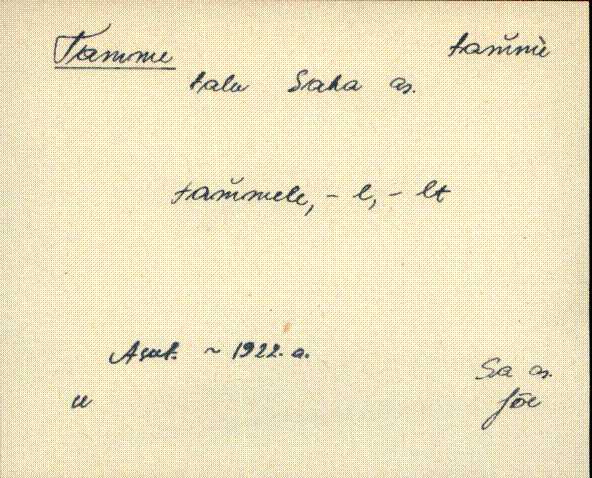 Tamme tam̆mè
talu Saha as.
tam̆mele, - l, - lt
Asut. ~ 1922. a.
Sa as.
u Jõe